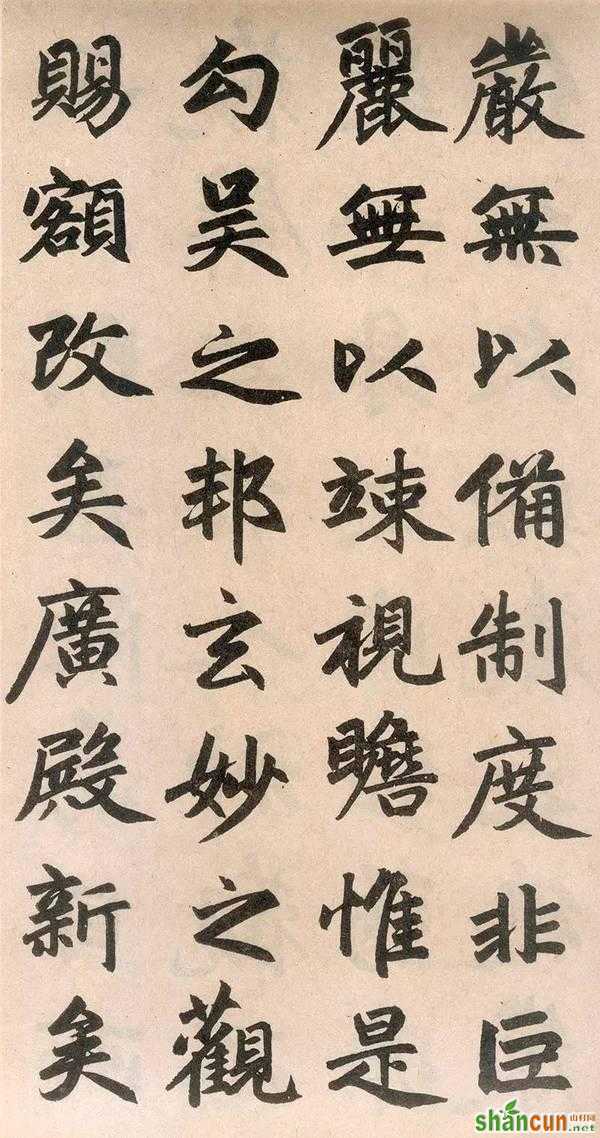 嚴無以備制度非巨
麗無以竦視瞻惟是
勾吳之邦玄妙之觀
賜額改矣廣殿新矣
shancun 山村网
.net